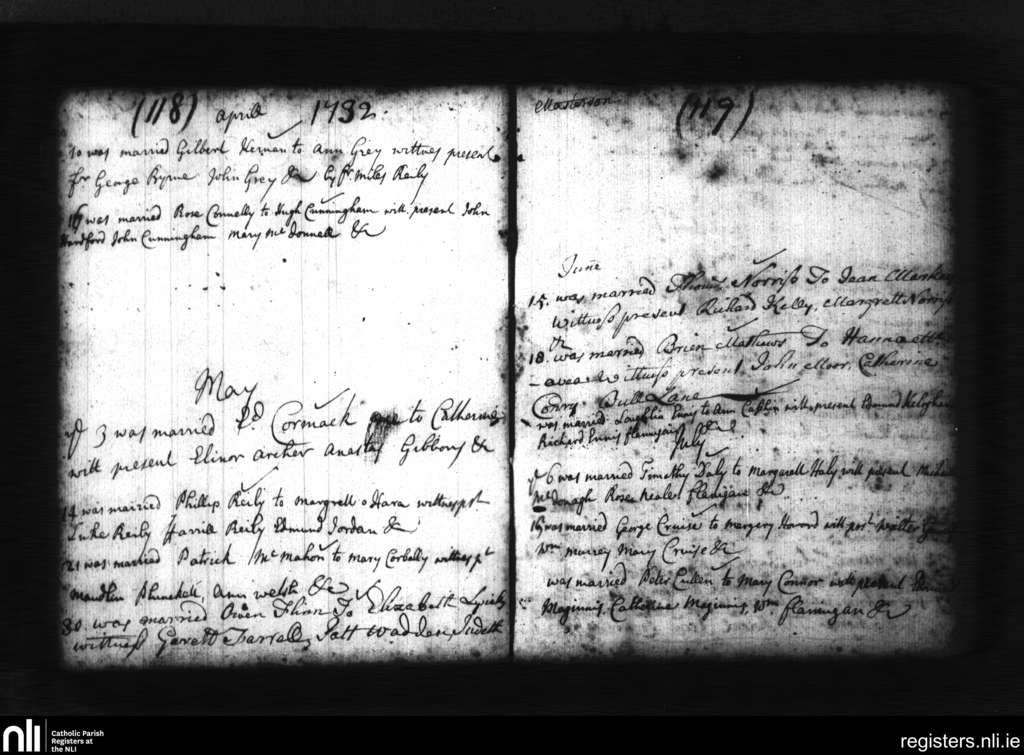 (118) aprill 1732
10 was married Gilbert Kernan to Ann Grey wittnes present
fr George Byrne John Grey &c by fr Miles Reily
16 was married Rose Connelly to Hugh Cunningham witt. present John
Handford John Cunningham Mary Mc donnell &c
May
ye 3 was married Cormack to Catherine
witt present Elinor Archer Anastas Gibbons &c
14 was married Phillip Reily to Margrett o Hara wittnes pst
Luke Reily Reily Edmund Jordan &c
21 was married Patrick Mc Mahon to Mary Corbally wittnes pt
Maudlin Plunckett, Ann Welsh &c
30 was married Owen Flinn To Elizabeth
wittness Garrett Farrell, Patt Wadden Judeth
Masterson (119)
June
15. was married Thomas Norriss To Jean
Wittness present Richard Kelly, Margrett Norris
&c
18. was married Brien Mathews To Hanna
Wittness present John Moor, Catherine
Conry Bull Lane
was married to Ann witt present Edmund
Richard &c
July
ye 6 was married Timothy Daly to Margarett Haly witt present
Mc donagh Rose Flanigan &c
19 was married George Cruise to Margery Harvord witt pst Walter
Wm Murrey Mary Cruise &c
was married Peter Cullen to Mary Connor witt present
Maginnis, Catherine Maginnis, Wm Flannigan &c
nli
Catholic Parish
Registers at
the NLI
registers.nli.ie